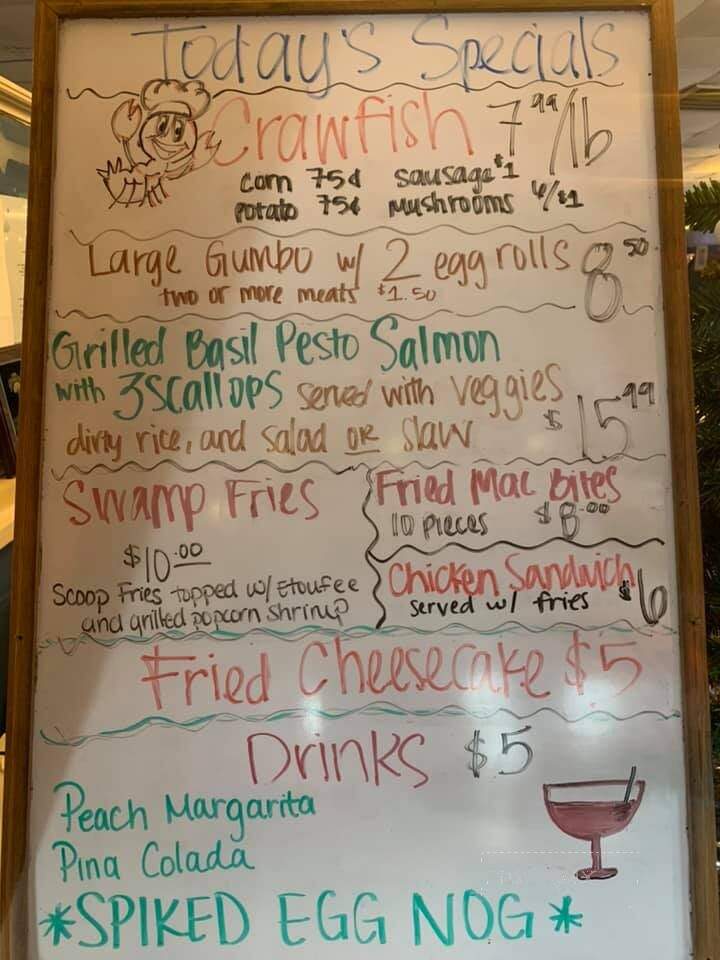 Today's Specials
Crawfish 7.99/lb
corn 75¢ sausage $1
potato 75¢ mushrooms 4/$1
Large Gumbo w/ 2 egg rolls 8.50
two or more meats $1.50
Grilled Basil Pesto Salmon
with 3 scallops served with veggies
dirty rice, and salad OR slaw $15.99
Swamp Fries
$10.00
Scoop Fries topped w/ Etoufee
and grilled popcorn shrimp
Fried Mac Bites
10 pieces $8.00
Chicken Sandwich
served w/ fries $6
Fried Cheesecake $5
Drinks $5
Peach Margarita
Pina Colada
*SPIKED EGG NOG*